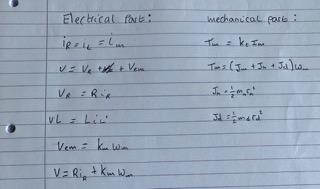 Electrical part:
i_R = i_L = i_m
V = V_R + V_em
V_R = R i_R
V_L = L i_L'
V_em = k_m ω_m
V = R i_R + k_m ω_m
mechanical part:
T_m = k_t I_m
T_m = (J_m + J_h + J_d) ω_m
J_h = ½ m_h r_h²
J_d = ½ m_d r_d²